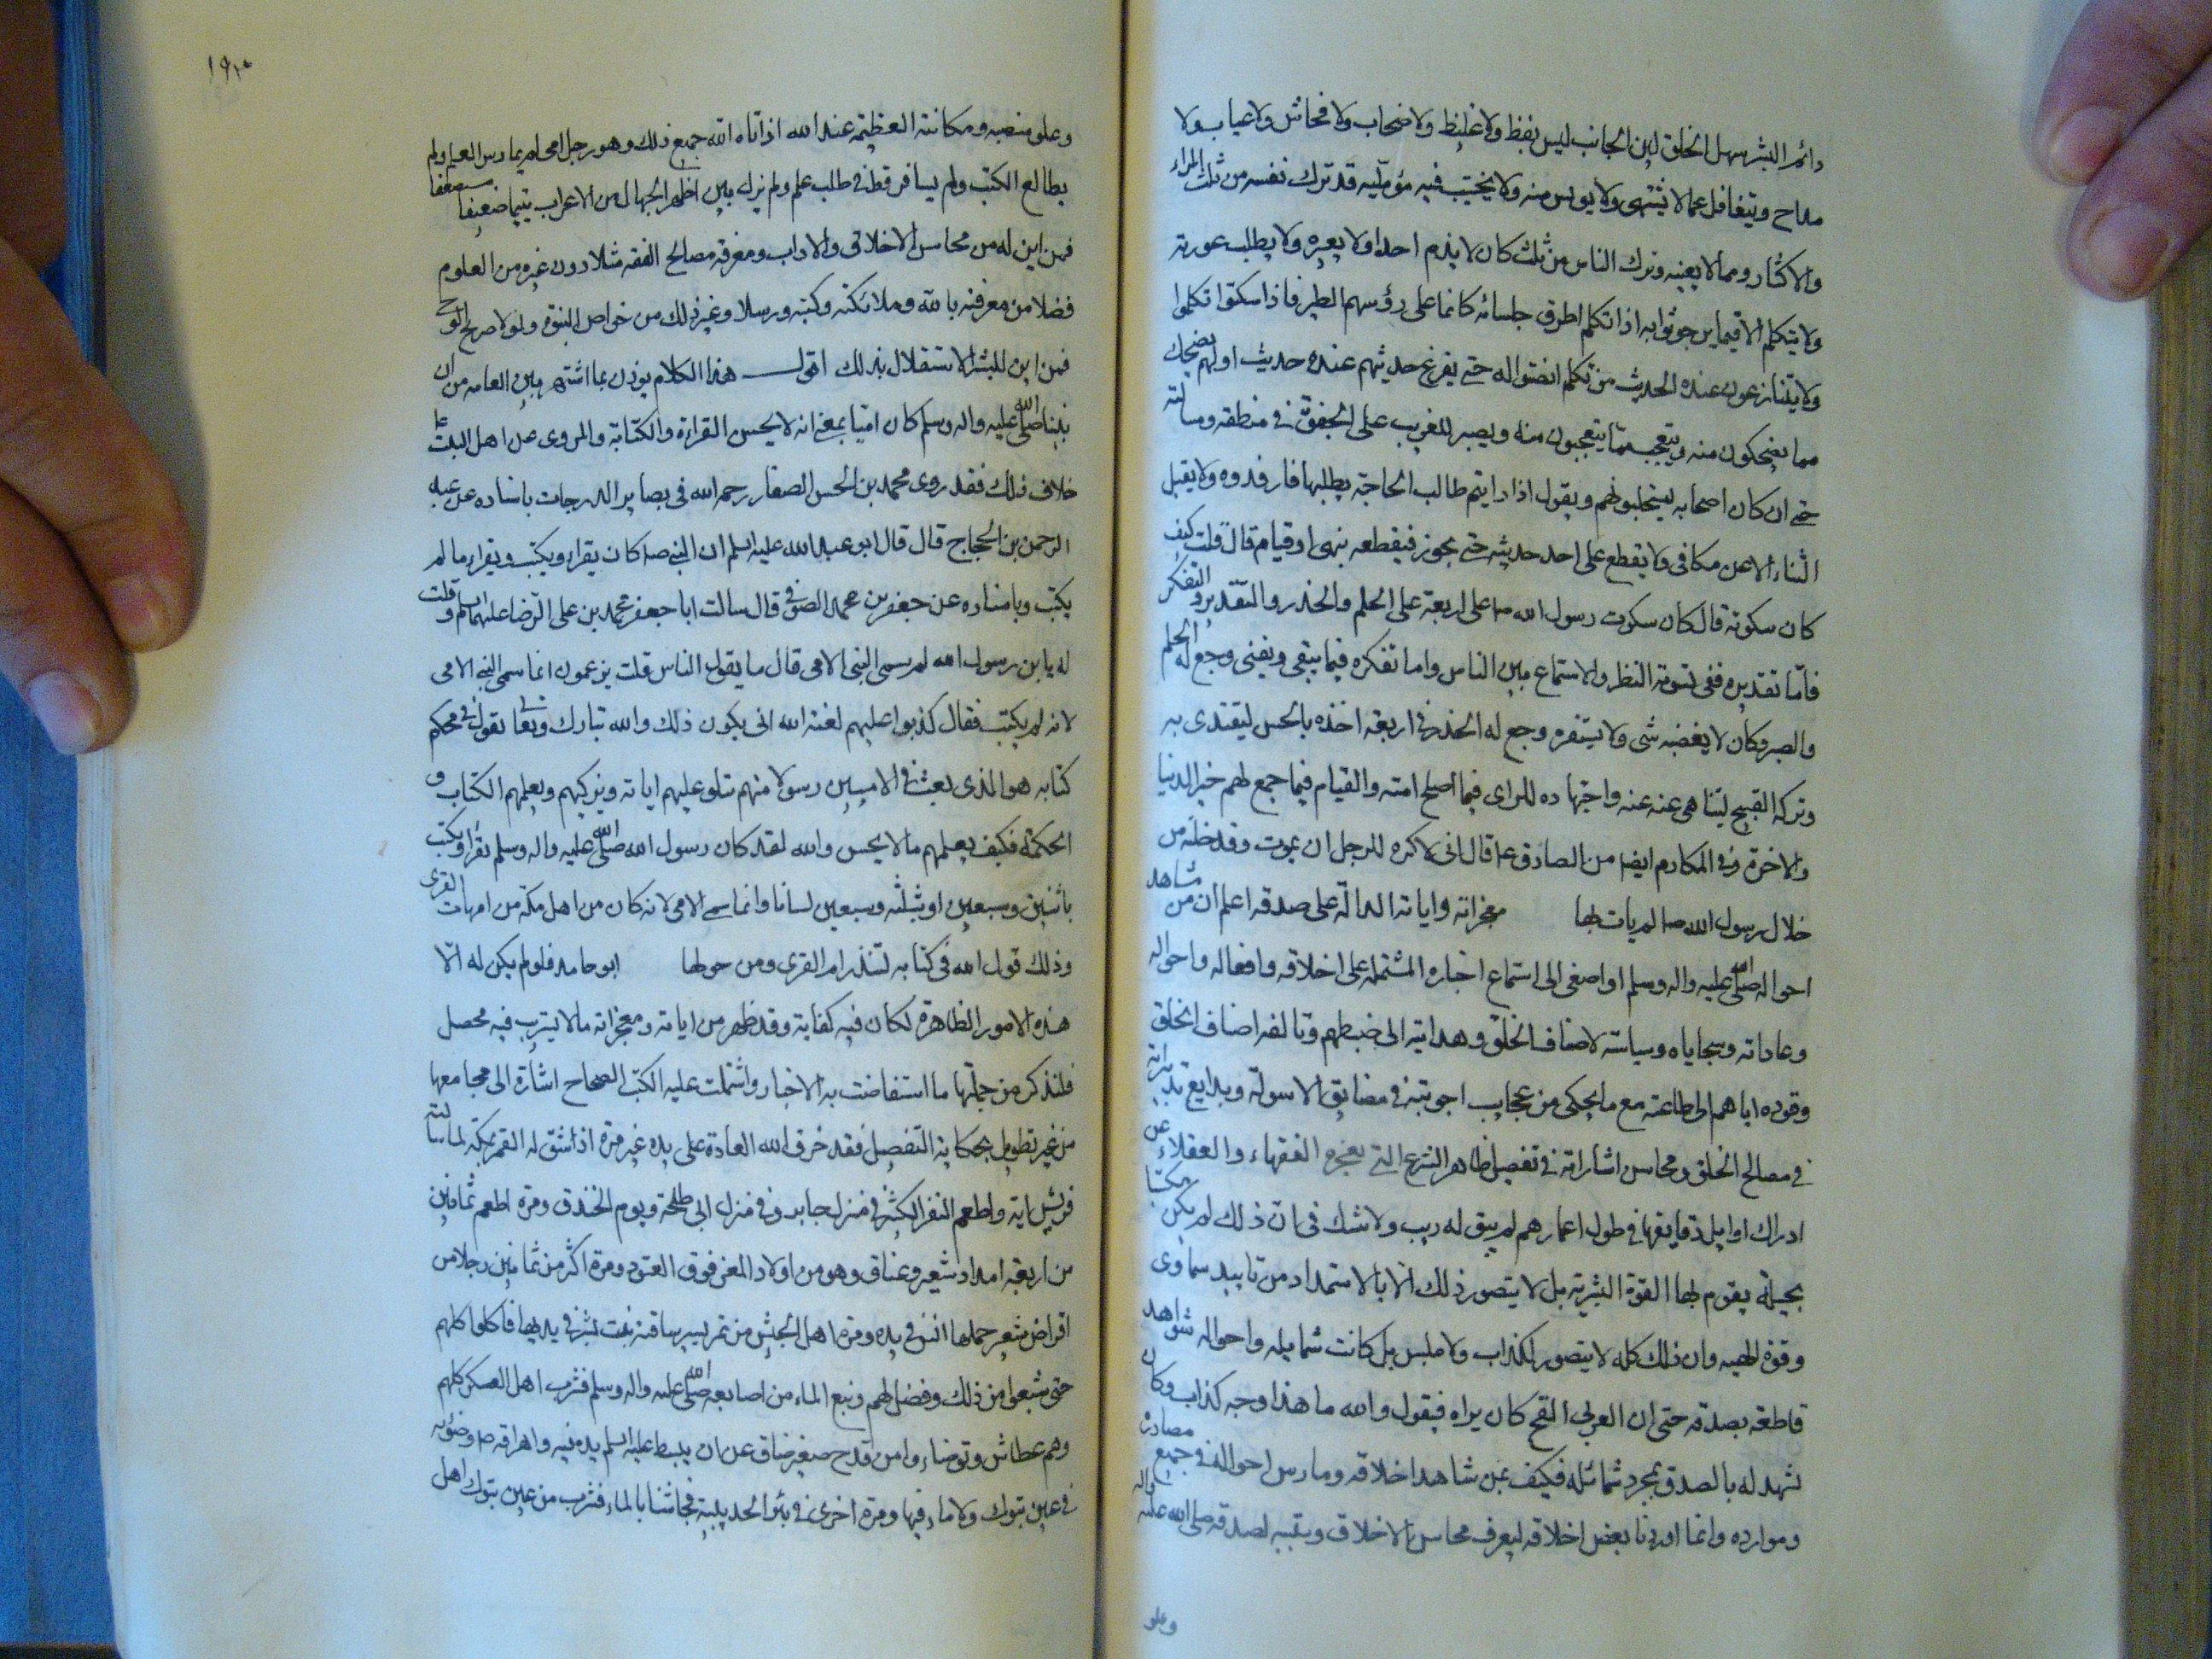 دائم البشر سهل الخلق لين الجانب ليس بفظ ولا غليظ ولا ضحاب ولا فحاش ولا عياب ولا
مداح ويتغافل عما لا يشتهى ولا يويس منه ولا يخيب فيه مؤمليه قد ترك نفسه من ثلث المراء
والاكثار ومما لا يعنيه وترك الناس من ثلث كان لا يذم احدا ولا يعيره ولا يطلب عورته
ولا يتكلم الا فيما يرجو ثوابه اذا تكلم اطرق جلسائه كانما على رؤسهم الطير فاذا سكت تكلموا
ولا يتنازعون عنده الحديث من تكلم انصتوا له حتى يفرغ حديثهم عنده حديث اولهم يضحك
مما يضحكون منه ويتعجب مما يتعجبون منه ويصبر للغريب على الجفوة في منطقه ومسألته
حتى ان كان اصحابه يستجلبونهم ويقول اذا رايتم طالب الحاجة يطلبها فارفدوه ولا يقبل
الثناء الا عن مكافى ولا يقطع على احد حديثه حتى يجوز فيقطعه بنهى او قيام قال قلت كيف
كان سكوته قال كان سكوت رسول الله ص على اربعة على الحلم والحذر والتقدير والتفكر
فاما تقديره ففى تسوية النظر والاستماع بين الناس واما تفكره فيما يبقى ويفنى وجمع له الحلم
والصبر فكان لا يغضبه شى ولا يستفزه وجمع له الحذر في اربعة اخذه بالحسن ليقتدى به
وتركه القبيح ليتناهى عنه واجتهاده للراى فيما اصلح امته والقيام فيما جمع لهم خير الدنيا
والاخرة وفى المكارم ايضا من الصادق ع قال انى لاكره للرجل ان يموت وقد خلة من
خلال رسول الله ص لم يات بها معجزاته واياته الدالة على صدقه اعلم ان من شاهد
احواله صلى الله عليه واله وسلم او اصغى الى استماع اخباره المشتملة على اخلاقه وافعاله واحواله
وعاداته وسجاياه وسياسته لاصناف الخلق وهدايته الى ضبطهم وتالفه اصناف الخلق
وقوده اياهم الى طاعته مع ما يحكى من عجايب اجوبته في مضايق الاسولة وبدايع تدبيراته
في مصالح الخلق ومحاسن اشاراته في تفصيل ظاهر الشرع التي يعجز الفقهاء والعقلاء عن
ادراك اوايل دقايقها في طول اعمارهم لم يبق له ريب ولا شك في ان ذلك لم يكن مكتسبا
بحيلة يقوم لها القوة البشرية بل لا يتصور ذلك الا بالاستمداد من تاييد سماوى
وقوة الهيه وان ذلك كله لا يتصور لكذاب ولا ملبس بل كانت شمايله واحواله شواهد
قاطعة بصدقه حتى ان العربى القح كان يراه فيقول والله ما هذا وجه كذاب وكان
يشهد له بالصدق بمجرد شمائله فكيف بمن شاهد اخلاقه ومارس احواله في جميع مصادره
وموارده وانما اوردنا بعض اخلاقه ليعرف محاسن الاخلاق ويتنبه لصدقه صلى الله عليه واله
وعلو
١٩٣
وعلو منصبه ومكانته العظيمة عند الله اذ اتاه الله جميع ذلك وهو رجل امى لم يمارس العلم ولم
يطالع الكتب ولم يسافر قط في طلب علم ولم يزل بين اظهر الجهال من الاعراب يتيما ضعيفا مستضعفا
فمن اين له من محاسن الاخلاق والاداب ومعرفة مصالح الفقه مثلا دون غيره من العلوم
فضلا من معرفته بالله وملائكته وكتبه ورسله وغير ذلك من خواص النبوة ولولا صريح الوحى
فمن اين للبشر الاستقلال بذلك انتهى هذا الكلام يوذن بما اشتهر بين العامه من ان
نبينا صلى الله عليه واله وسلم كان اميا بمعنى انه لا يحسن القراءة والكتابة والمروى عن اهل البيت ع
خلاف ذلك فقد روى محمد بن الحسن الصفار رحمه الله في بصاير الدرجات باسناده عن عبد
الرحمن بن الحجاج قال قال ابو عبد الله عليه السلم ان النبي ص كان يقراء ويكتب ويقراء ما لم
يكتب وباسناده عن جعفر بن محمد الصوفى قال سالت ابا جعفر محمد بن على الرضا عليهما السلم وقلت
له يابن رسول الله لم سمى النبى الامى قال ما يقول الناس قلت يزعمون انما سمى النبى الامى
لانه لم يكتب فقال كذبوا عليهم لعنة الله انى يكون ذلك والله تبارك وتعالى يقول في محكم
كتابه هو الذى بعث في الاميين رسولا منهم يتلو عليهم اياته ويزكيهم ويعلمهم الكتاب و
الحكمة فكيف يعلمهم ما لا يحسن والله لقد كان رسول الله صلى الله عليه واله وسلم يقرا ويكتب
باثنين وسبعين او بثلثه وسبعين لسانا وانما سمى الامى لانه كان من اهل مكة من امهات القرى
وذلك قول الله في كتابه لتنذر ام القرى ومن حولها ابو حامد فلو لم يكن له الا
هذه الامور الظاهرة لكان فيه كفاية وقد ظهر من اياته ومعجزاته ما لا يستريب فيه محصل
فلنذكر من جملتها ما استفاضت به الاخبار واشتملت عليه الكتب الصحاح اشارة الى مجامعها
من غير تطويل بحكاية التفصيل فقد خرق الله العادة على يده غير مرة اذا شق له القمر بمكة لما سالته
قريش اية واطعم النفر الكثير في منزل جابر وفي منزل ابى طلحة ويوم الخندق ومرة اطعم ثمانين
من اربعة امداد شعير وعناق وهو من اولاد المعز فوق العتود ومرة اكثر من ثمانين رجلا من
اقراض شعير حملها انس في يده ومرة اهل الجيش من تمر يسير ساقته بنت بشر في يدها فاكلوا كلهم
حتى شبعوا من ذلك وفضل لهم ونبع الماء من اصابعه صلى الله عليه واله وسلم فشرب اهل العسكر كلهم
وهم عطاش وتوضاءوا من قدح صغير ضاق عن ان يبسط عليه السلم يده فيه واهراق ص وضوئه
في عين تبوك ولا ماء فيها ومرة اخرى في بئر الحديبية فجاشتا بالماء فشرب من عين تبوك اهل